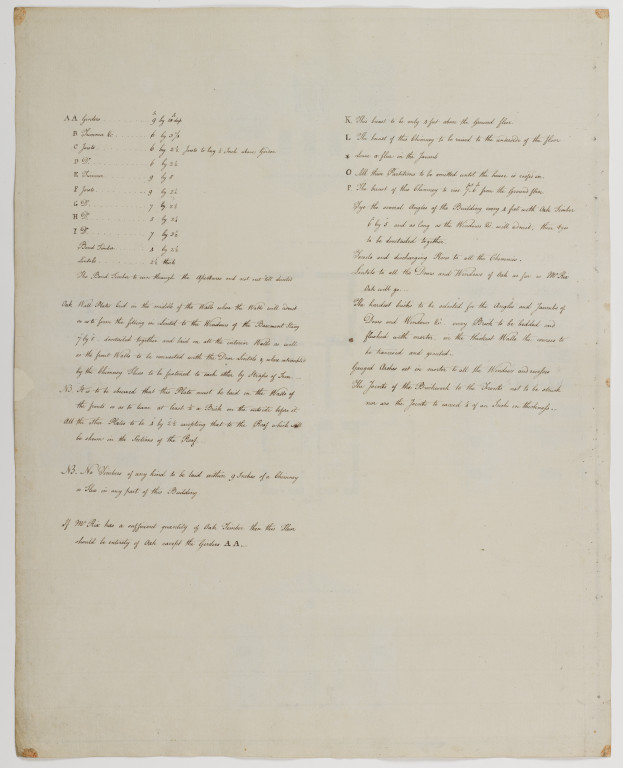 A A Girders . . . . . 9 by 10 deep
B Trimmers &c . . . . . 6 by
C Joists . . . . . 6 by 2½ Joists to lay
D Do. . . . . . 6 by 2½
E Trimmer . . . . . 9 by
F Joists . . . . . 9 by 2½
G Do. . . . . . 7 by 2½
H Do. . . . . . 5 by 2½
I Do. . . . . . 7 by 2½
Bond Timber . . . . 4 by 2½
Lintels . . . . . 2½ thick
The Bond Timber to run through the Apertures and not cut till directed
Oak Wall Plates laid in the middle of the Walls where the Walls will admit
so as to form the fitting on Lintel to the Windows of the Basement Story
7 by dovetailed together and laid on all the interior Walls as well
as the front Walls to be connected with the Door Lintels & where intercepted
by the Chimney Flues to be fastened to each other by Straps of Iron
NB. It is to be observed that this Plate must be laid in the Walls of
the fronts so as to have at least ½ a Brick on the outside before it
All the other Plates to be 4 by 2½ excepting that to the Roof which will
be shewn in the Sections of the Roof.
NB. No Timbers of any kind to be laid within 9 Inches of a Chimney
or Flue in any part of this Building
If Mr Rix has a sufficient quantity of Oak Timber then this Floor
should be entirely of Oak except the Girders A A.
K. This breast to be only 2 feet above the Ground floor.
L. The breast of this Chimney to be raised to the underside of the floor
above a floor in the
O All these Partitions to be omitted until the house is roofed in.
P. The breast of this Chimney to rise from the Ground floor.
Tye the several Angles of the Building every 4 feet with Oak Timber
6 by and as long as the Windows &c will admit, these tyes
to be dovetailed together.
Trusses and discharging Pieces to all the Chimnies.
Lintels to all the Doors and Windows of Oak as far as Mr Rix
Oak will go.
The hardest bricks to be selected for the Angles and Jaumbs of
Doors and Windows &c every Brick to be bedded and
flushed with mortar, in the thickest Walls the courses to
be larried and grouted.
Gauged Arches set in mortar to all the Windows and recesses
The Joints of the Brickwork to the Fronts not to be struck
nor are the Joints to exceed ¼ of an Inch in thickness.